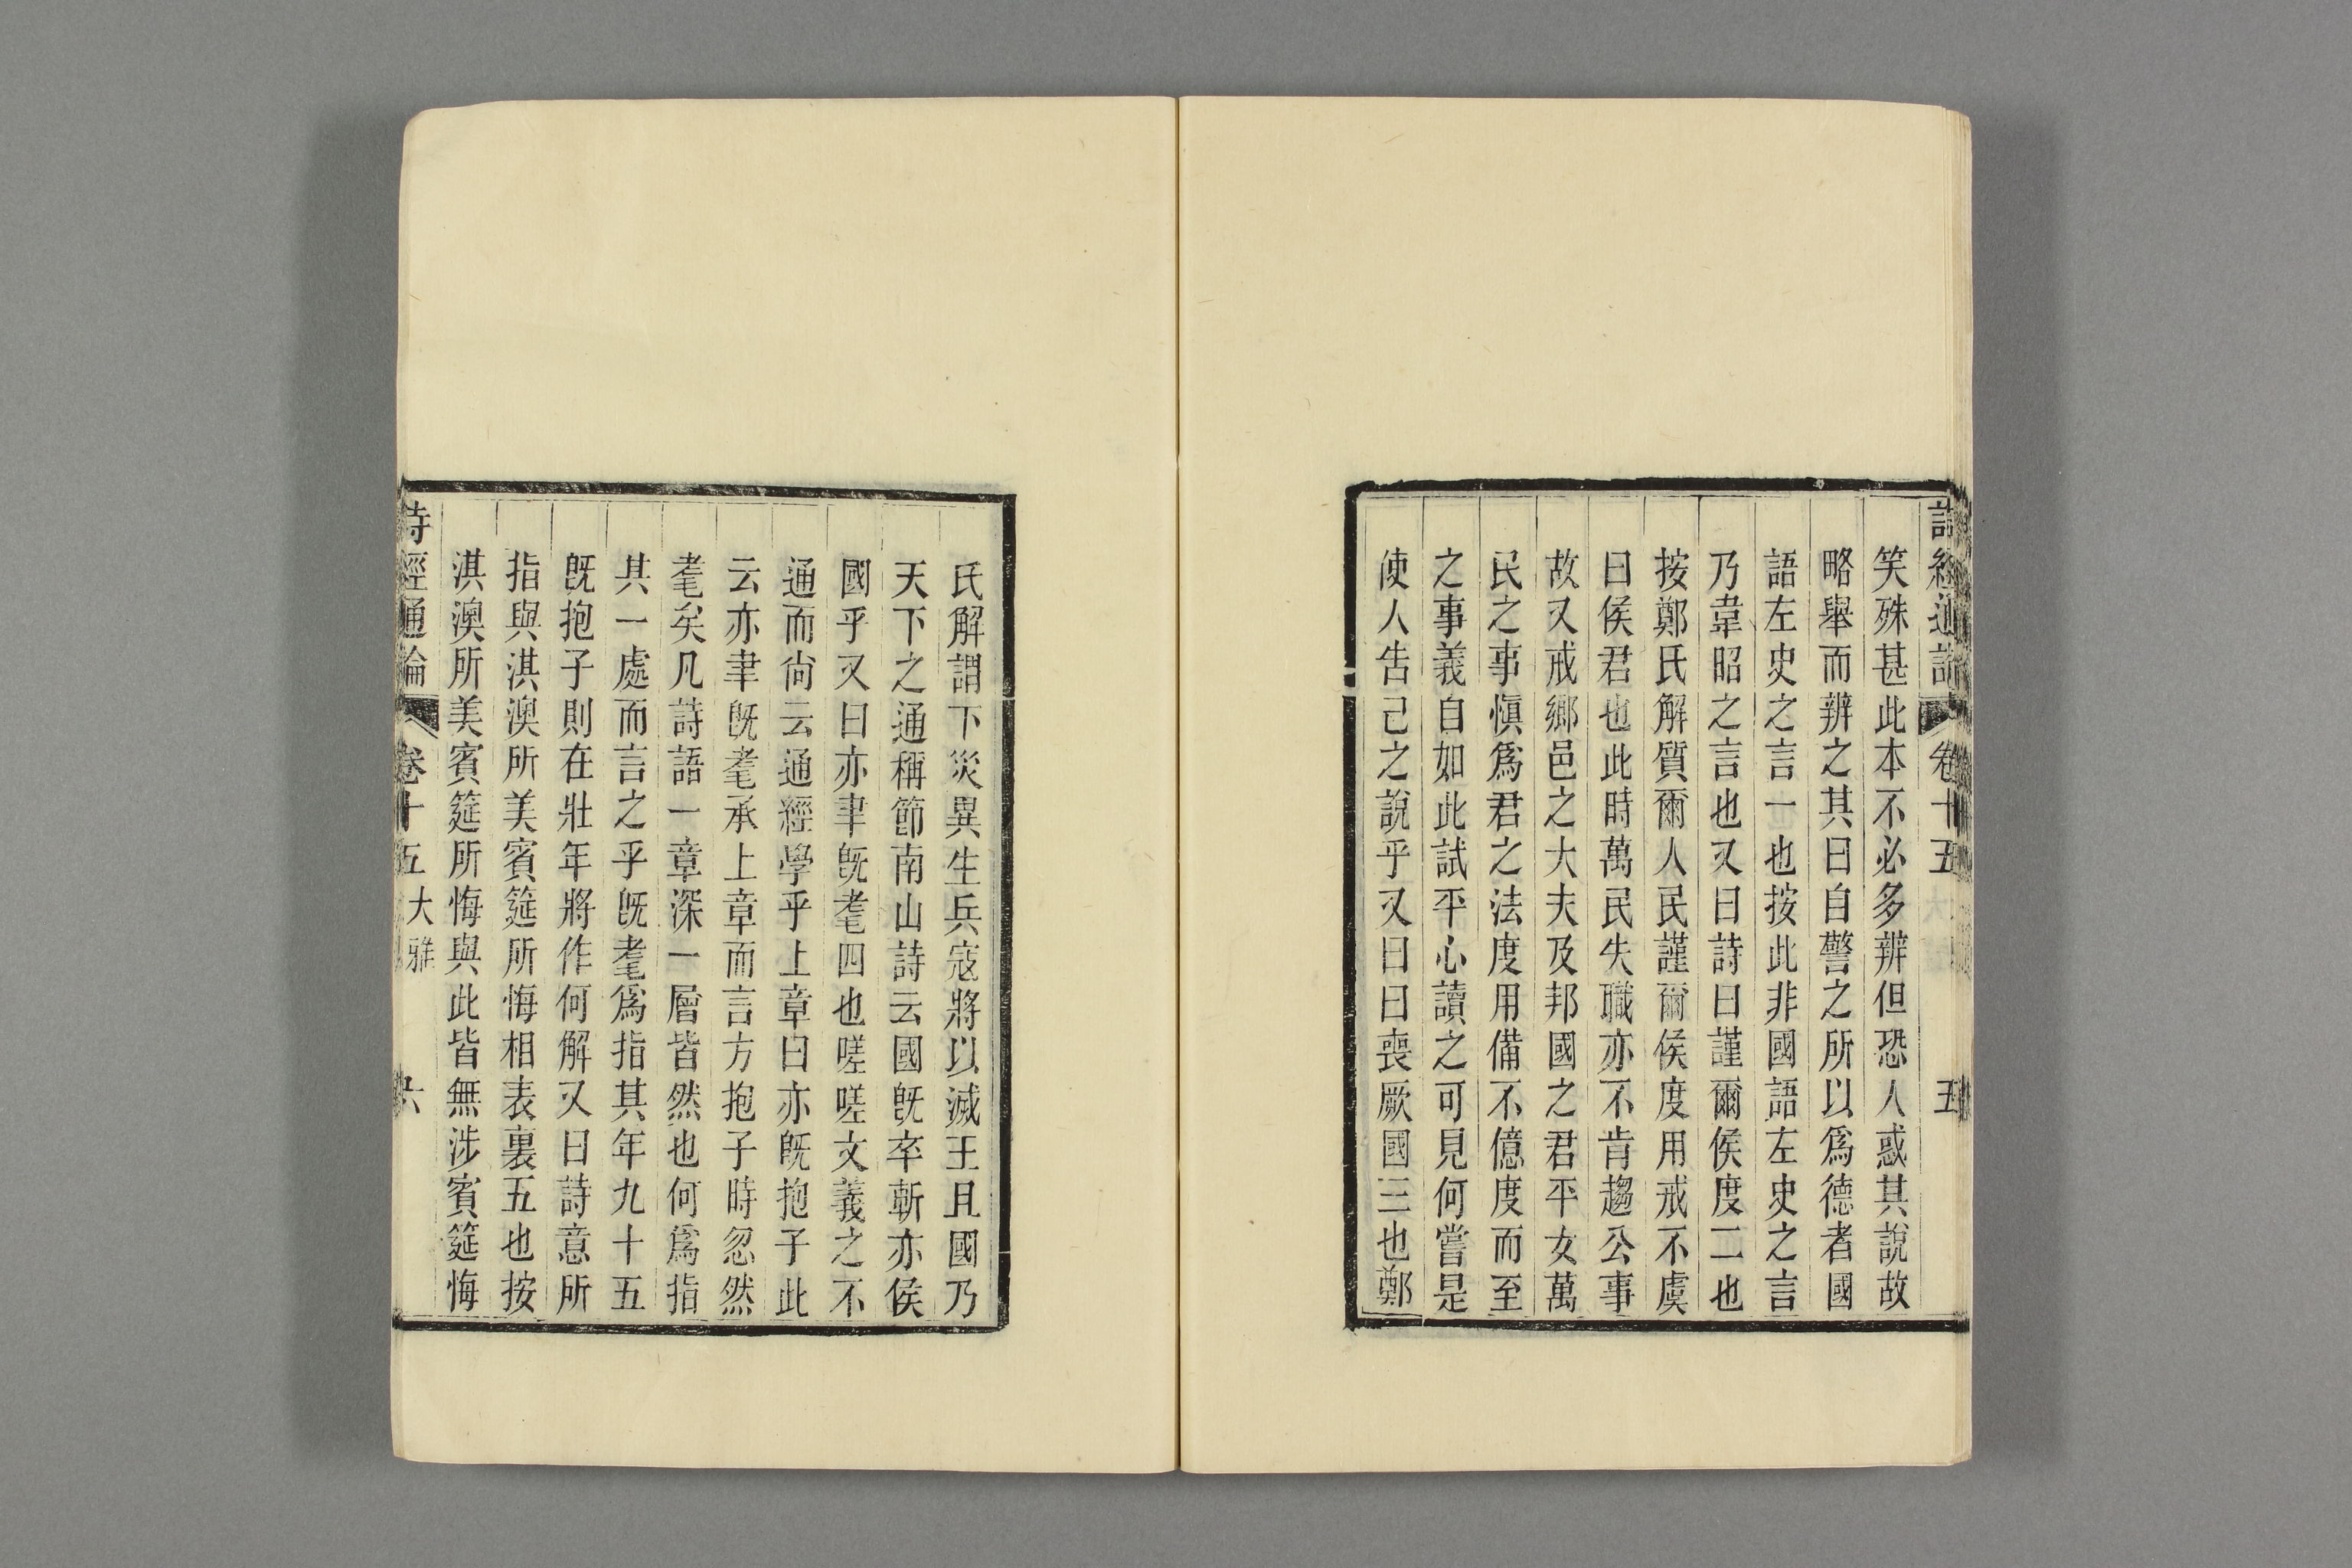 詩經通論 卷十五 五
笑殊甚此本不必多辨但恐人惑其說故
略舉而辨之其曰自警之所以爲德者國
語左史之言一也按此非國語左史之言
乃韋昭之言也又曰詩曰謹爾侯度二也
按鄭氏解質爾人民謹爾侯度用戒不虞
曰侯君也此時萬民失職亦不肯趨公事
故又戒鄉邑之大夫及邦國之君平女萬
民之事慎爲君之法度用備不億度而至
之事義自如此試平心讀之可見何嘗是
使人告己之說乎又曰曰喪厥國三也鄭
氏解謂下災異生兵寇將以滅王且國乃
天下之通稱節南山詩云國旣卒斬亦侯
國乎又曰亦聿旣耄四也嗟嗟文義之不
通而尙云通經學乎上章曰亦旣抱子此
云亦聿旣耄承上章而言方抱子時忽然
耄矣凡詩語一章深一層皆然也何爲指
其一處而言之乎旣耄爲指其年九十五
旣抱子則在壯年將作何解又曰詩意所
指與淇澳所美賓筵所悔相表裏五也按
淇澳所美賓筵所悔與此皆無涉賓筵悔
詩經通論 卷十五 大雅 六